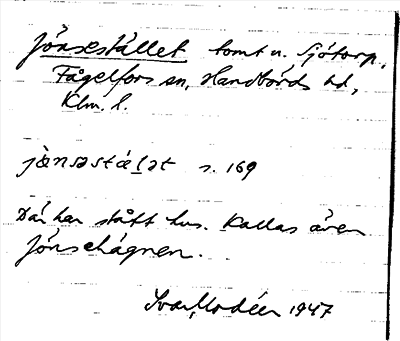 Jönsestället tomt u. Sjötorp,
Fågelfors sn, Handbörds hd,
Klm. l.
jönsəstäḷət s. 169
Där har stått hus. Kallas även
Jönsehagnen.
Ivar Modéer 1947